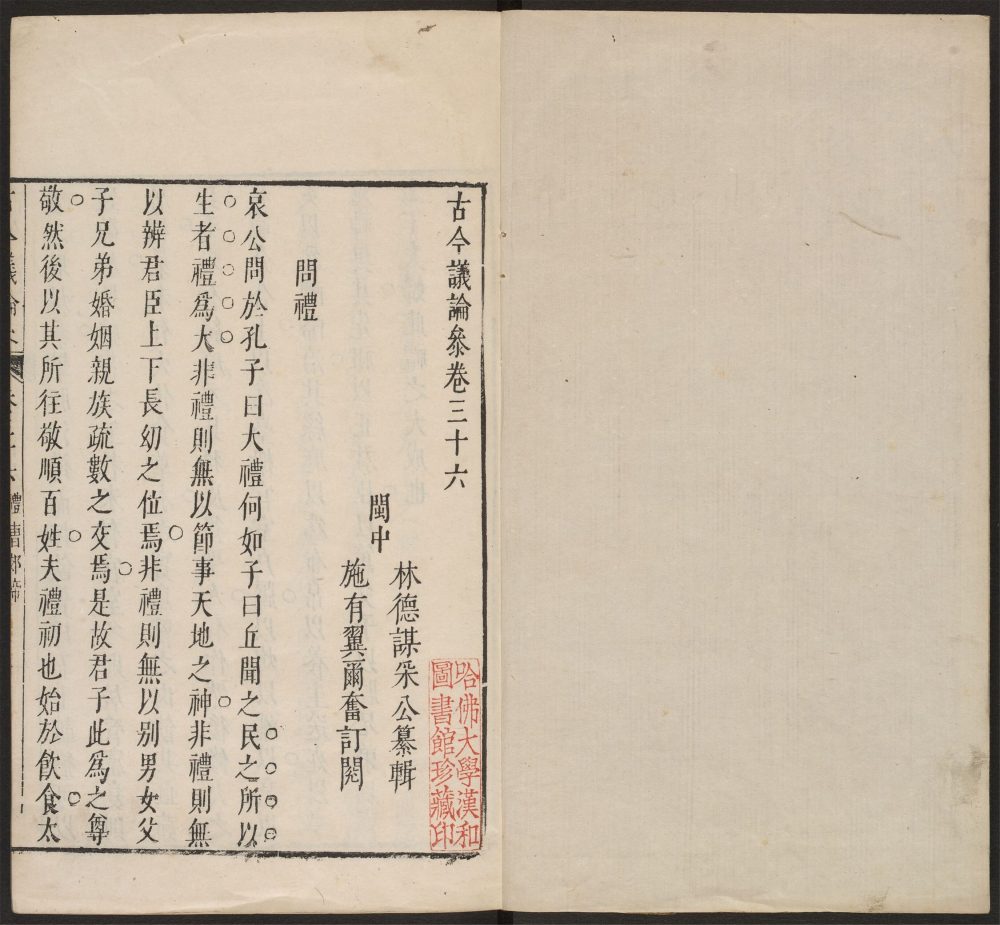 古今議論叅卷三十六
閩中
林德謀采公纂輯
施有翼爾奮訂閱
哈佛大學漢和
圖書館珍藏印
問禮
哀公問於孔子曰大禮何如子曰丘聞之民之所以
生者禮爲大非禮則無以節事天地之神非禮則無
以辨君臣上下長幼之位焉非禮則無以别男女父
子兄弟婚姻親族疏數之交焉是故君子此爲之尊
敬然後以其所往敬順百姓夫禮初也始於飲食太